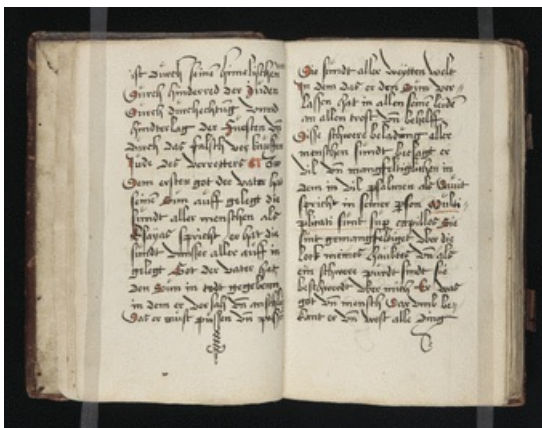 ist durch seine himelischen
Durch hinderred der Juden
Durch durchechtung vnnd
hinderlag der Fursten vñ
durch das falsch ver kauffen
Jude des verretters
Dem ersten got der vater hat
seinē Sun auff gelegt die
sundt aller menschen als
Esayas spricht er hat die
sundt vnnser aller auff in
gelegt Got der vater hat
den Sun in todt gegebenn
in dem er versach vñ
Das er must pussen vñ
Die sundt aller weytten welt
In dem das er den Sun ver-
lassen hat in allen seinē leidē
an allen trost vñ behelff
Disse schwere beladung aller
menschen sundt beclagt er
vil vñ mangfeltiglichen in
dem in vil psalmen als Dauit
spricht in seiner pson Multi-
plicati sunt sup capillos Sie
sint gemangfeldiget vber die
lock meines haubtes vñ als
ein schwere purdt sindt sie
beschwerdt vber mich Er was
got vñ mensch Dar vmb be-
kant er vñ west alle ding